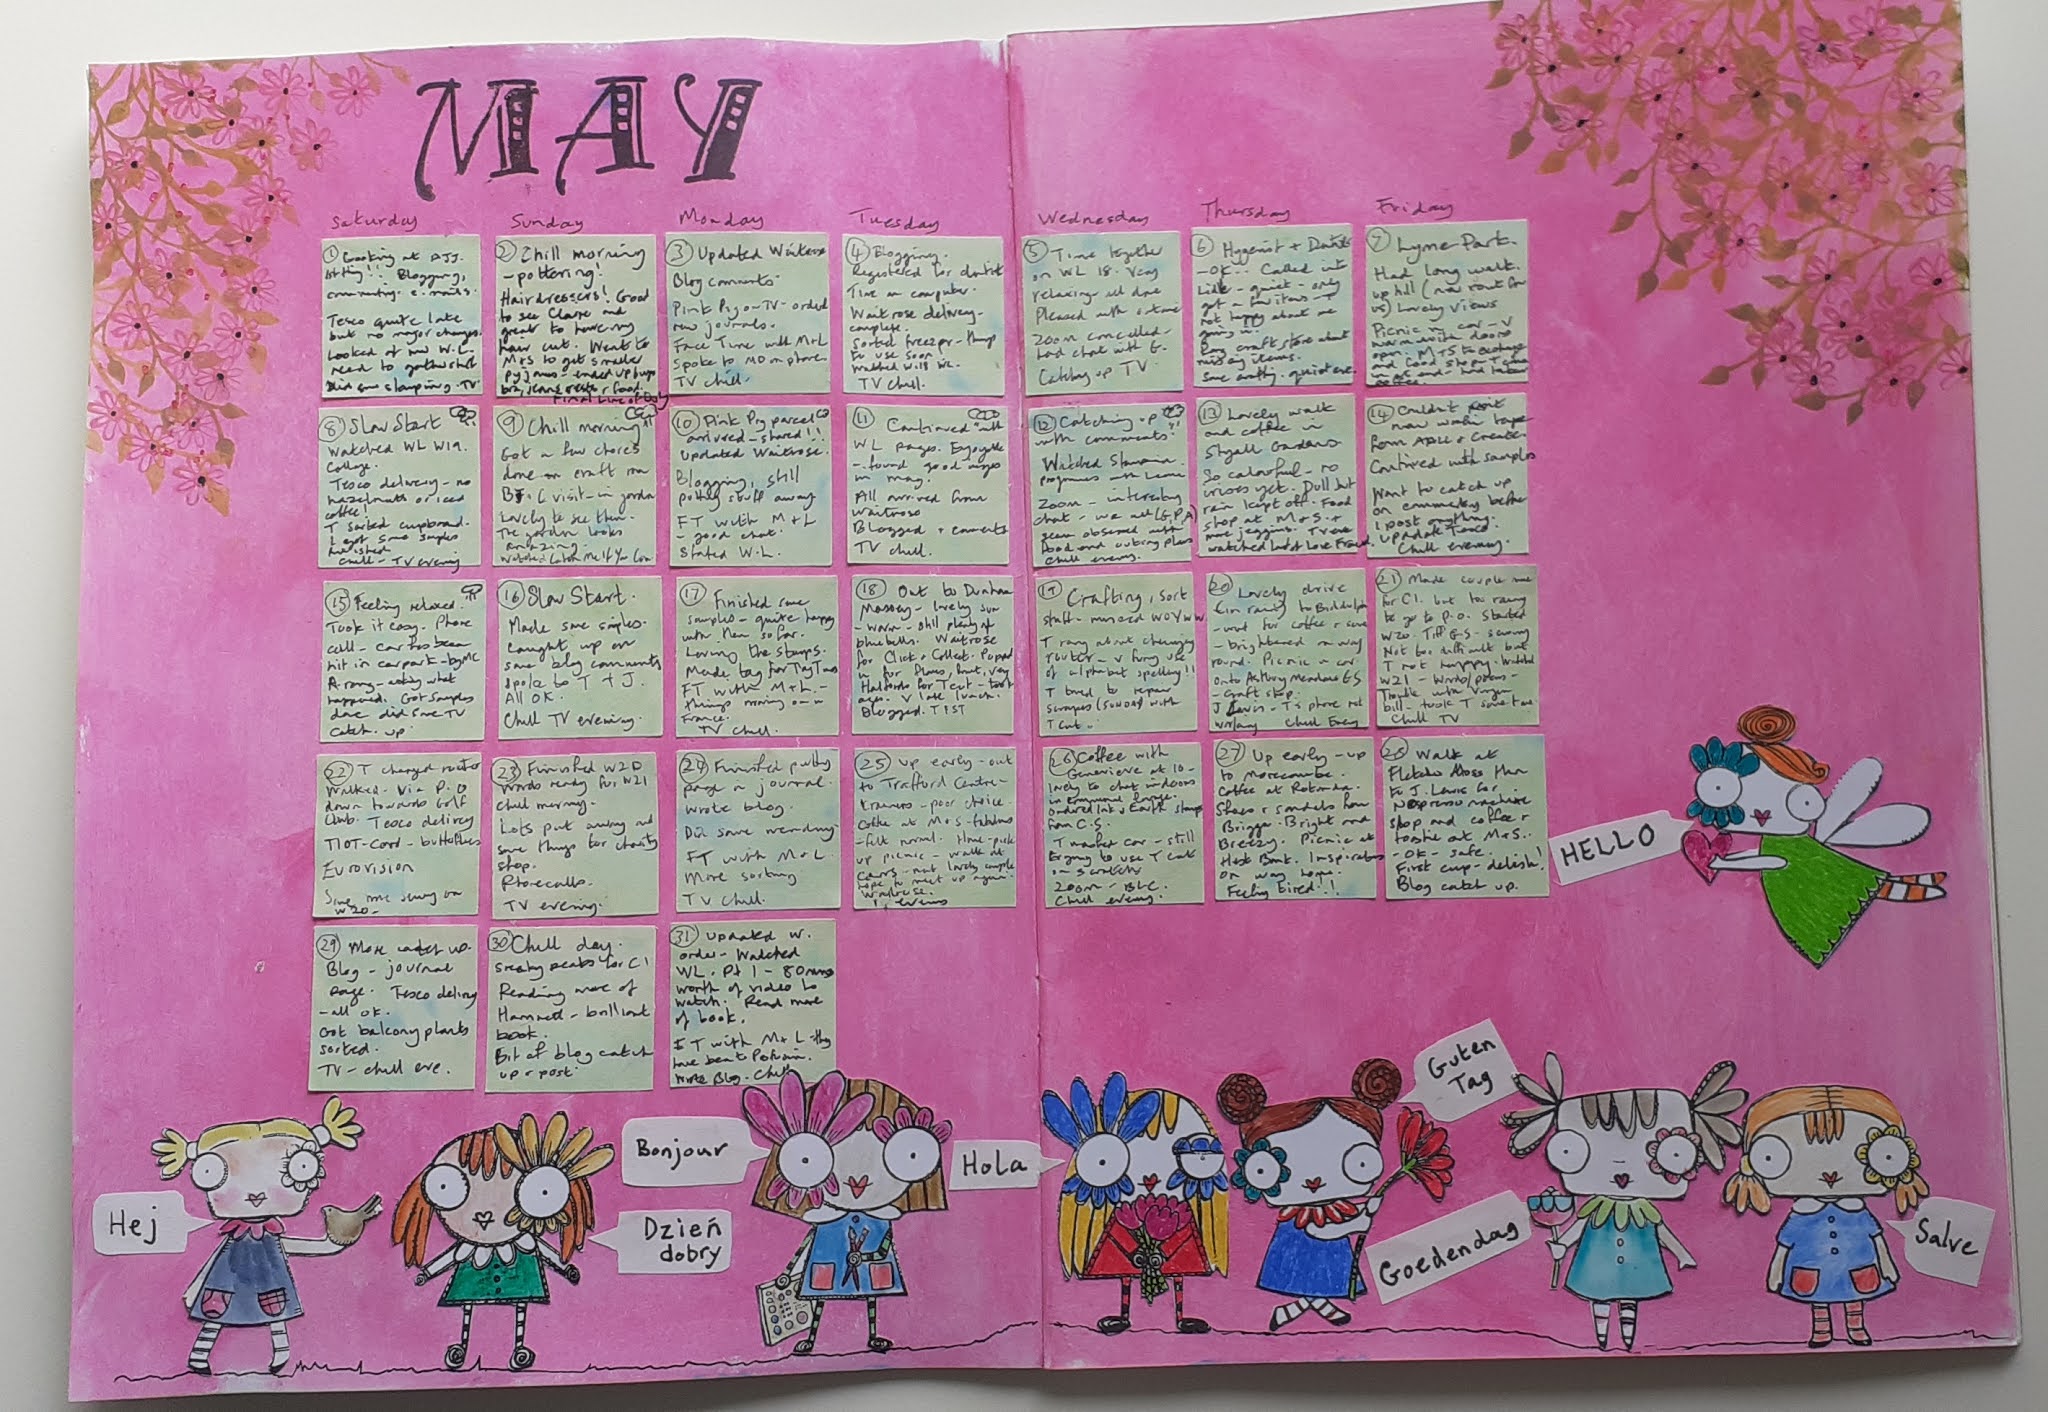 MAY
Saturday Sunday Monday Tuesday Wednesday Thursday Friday
1
Blogging,
Tesco quite late
but no major changes.
need to
TV
2 Chill morning
- pottering!
Hairdressers! Good
to see Claire and
great to have my
hair cut. Went to
M+S to get smaller
Pyjamas - ended up buying
Final Line of Duty
3 Updated Waitrose
Blog comments
Pink Pig on TV - ordered
new journals.
Face Time with M+L
spoke to MD on phone
TV chill.
4 Blogging.
Registered for dentist
Time on computer.
Waitrose delivery -
complete.
Sorted freezer - things
to use soon!
Watched W18 WL.
TV chill.
5 Time together
on WL 18. Very
relaxing - all done
Pleased with outcome
Zoom cancelled -
had chat with G.
Catching up TV.
6 Hygenist +
- OK - Called into
Lidl - quiet - only
got a few items - T
not happy about me
going in!
Rang craft store about
missing items.
Some crafty. quiet eve.
7 Lyme Park.
Had long walk.
up hill (new route for
us) Lovely views
Picnic in car - v
warm with doors
open. M+S to exchange
and Food shop
8 Slow Start
Watched WL W19.
Collage.
Tesco delivery - no
hazelnuts or iced
coffee!
T sorted cupboard.
I got some samples
finished
chill - TV evening
9 Chill morning
Got a few chores
done in craft rm
B + C visit - in garden
Lovely to see them.
The garden looks
amazing
Watched Catch Me If You Can
10 Pink Pig parcel
arrived - shared!!
updated Waitrose.
Blogging, still
putting stuff away
FT with M+L
- good chat.
Started W.L.
11 Continued with
WL pages. Enjoyable
- found good images
in mag.
All arrived from
Waitrose
Blogged + comments
TV chill.
12 Catching up
with comments
Watched
programmes with
Zoom - interesting
chat - we all (G, P, A)
seem obsessed with
food and outing places
Chill evening.
13 Lovely walk
and coffee in
Styall Gardens
So colourful - no
irises yet. Dull but
rain kept off. Food
shop at M+S. +
more jeggins. TV eve
watched last of Love Fraud.
14 Couldn't resist
new washi tape
from
Continued with samples
Want to catch up
on commenting before
I post anything.
Update Tesco
Chill evening.
15 Feeling relaxed.
Took it easy. Phone
call - Car has been
hit in carpark - by Mc
A rang - asking what
happened. Got samples
done did some TV
catch up
16 Slow Start.
Made some samples.
Caught up on
some blog comments
Spoke to T + J.
All OK.
Chill TV evening.
17 Finished some
samples - quite happy
with them so far.
Loving the stamps.
Made tag for
FT with M+L. -
things moving on in
France.
TV chill.
18 Out to Dunham
Massey - lovely sun
- warm - still plenty of
bluebells. Waitrose
for Click + Collect. Popped
in for flowers, fruit, veg
Halfords for T cut - took
ages. V late lunch.
Blogged. TIST
19 Crafting, sort
stuff - missed WOYWW.
T rang about changing
router - v funny use
of alphabet spelling!!
T tried to repair
scrapes (SUNDAY) with
T cut.
20 Lovely drive
(in rain) to Biddulph
- went for coffee + cake
- brightened on way
round. Picnic in car
onto Astbury Meadow GS
- craft shop.
J Lewis - T's phone not
working Chill Eveng
21 Made couple more
for C1. but too rainy
to go to P.O. Started
W20. Tiff G-S - sewing
Not too difficult but
T not happy. Watched
W21 - Words/poems -
Trouble with Virgin
bill - took T some time
Chill TV
22 T changed router
Walked. Via P.O
down towards Golf
Club. Tesco delivery
TIOT - Card - butterflies
Eurovision
Some more sewing on
W20 -
23 Finished W20
Words ready for W21
Chill morning.
Lots put away and
some things for charity
shop.
Phonecalls.
TV evening.
24 Finished putting
page in journal.
Wrote blog.
Did some mending
FT with M+L.
More sorting
TV chill.
25 Up early - out
to Trafford Centre -
trainers - poor choice.
Coffee at M+S - fabulous
- felt normal. Home - pick
up picnic - walk at
- met lovely couple
hope to meet up again.
Waitrose.
26 Coffee with
Genevieve at 10 -
lovely to chat indoors
in
ordered Ink + Earth stamps
from C.S.
T washed car - still
trying to use T cut
on scratches
Zoom -
Chill evening.
27 Up early - up
to Morecambe.
Coffee at Rotunda.
Shoes + sandals from
Briggs. Bright and
Breezy. Picnic at
Hest Bank. Inspiration
on way home.
Feeling tired!!
28 Walk at
Fletcher Moss then
to J. Lewis for
Nespresso machine
shop and coffee +
toastie at M+S.
- OK - safe.
First cup - delish!
Blog catch up.
29 More catch up.
Blog - journal
page. Tesco delivery
- all ok.
Got balcony plants
sorted.
TV - chill eve.
30 Chill day.
Sneaky peaks for C1
Reading more of
Hamnet - brilliant
book.
Bit of blog catch
up + post.
31 updated W.
order - Watched
WL. Pt 1 - 80 mins
worth of video to
watch. Read more
of book.
FT with M+L - they
have been to
Wrote Blog. Chill
HELLO
Hej
Dzień
dobry
Bonjour
Hola
Guten
Tag
Goedendag
Salve